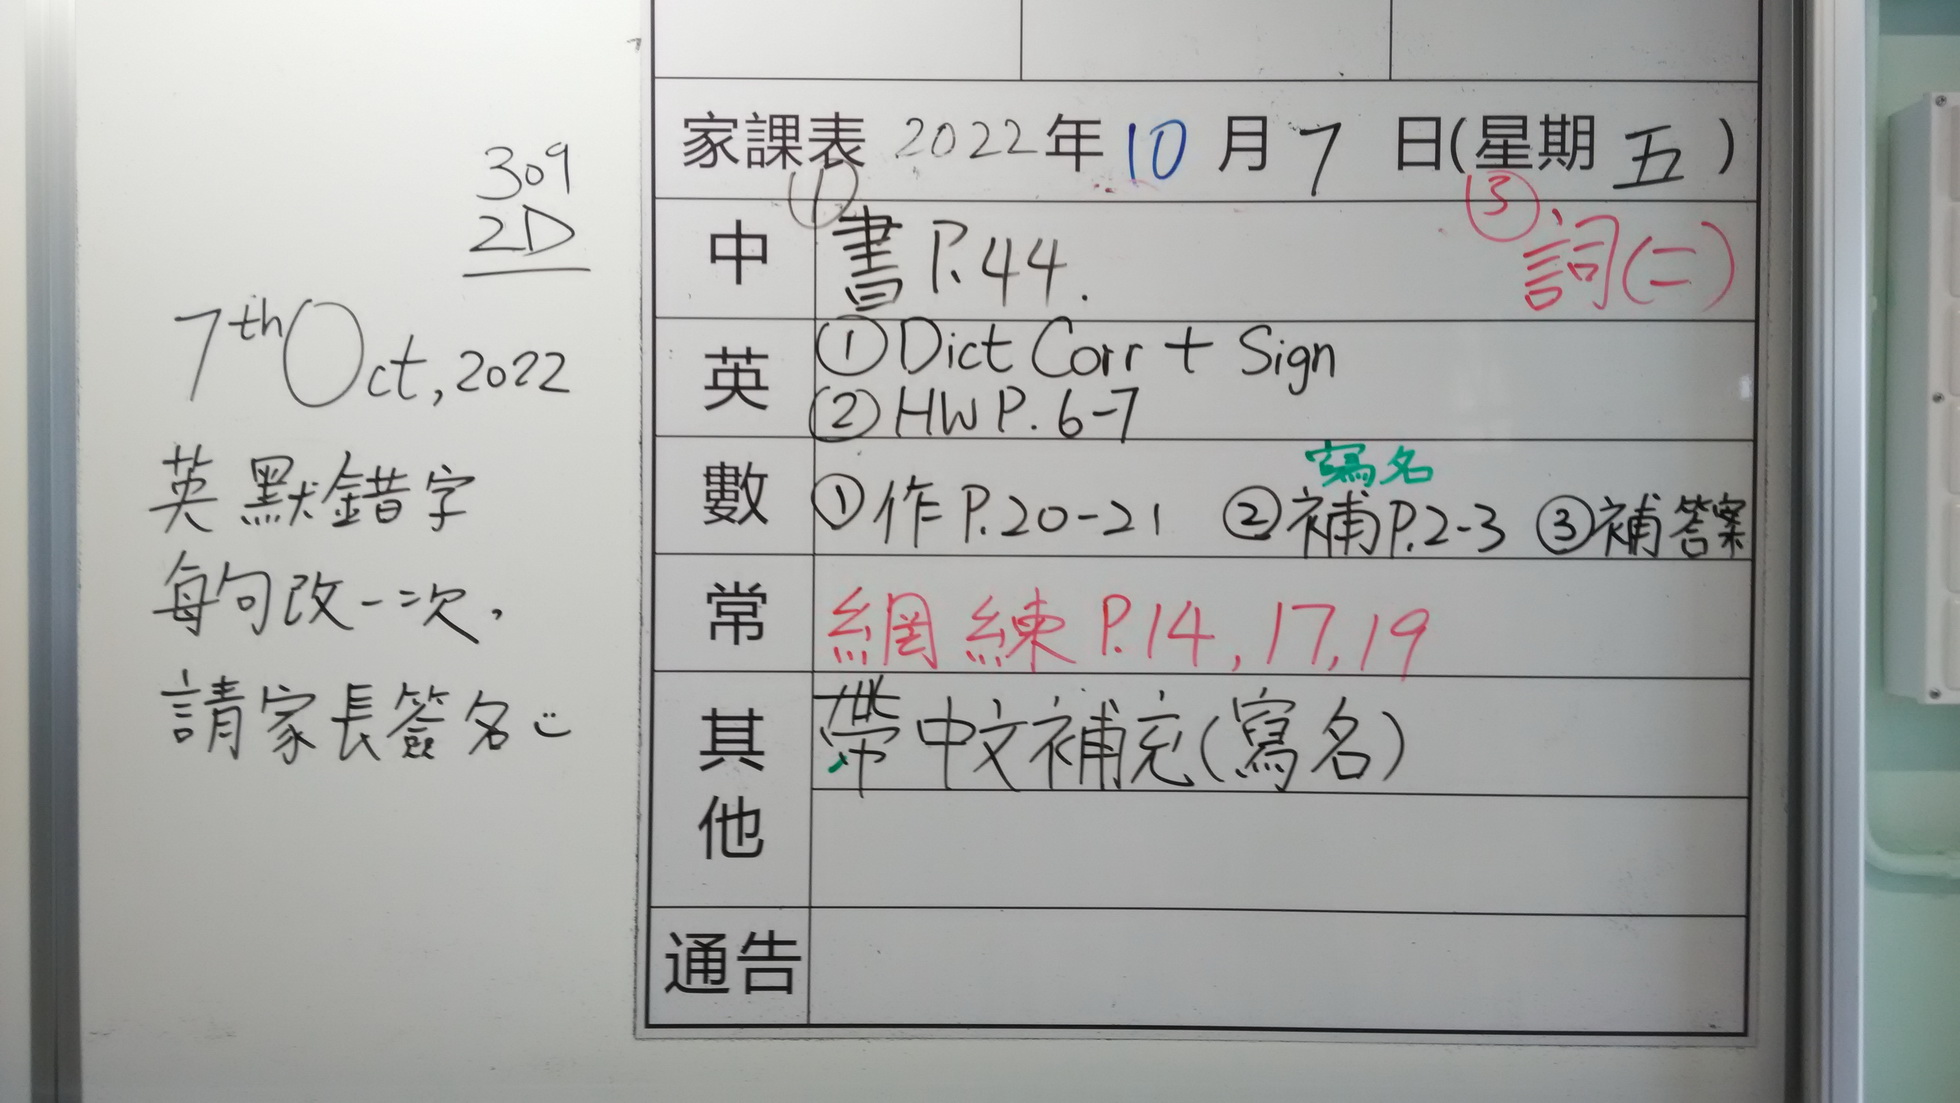 309
2D
7th Oct, 2022
英默錯字
每句改一次,
請家長簽名
家課表 2022年10月7日(星期五)
中 ① 書 P.44. ③ 詞(二)
英 ① Dict Corr + Sign
② HW P. 6-7
數 ① 作 P.20-21 ② 補P.2-3 寫名 ③ 補答案
常 網練 P.14, 17, 19
其他 帶中文補充(寫名)
通告